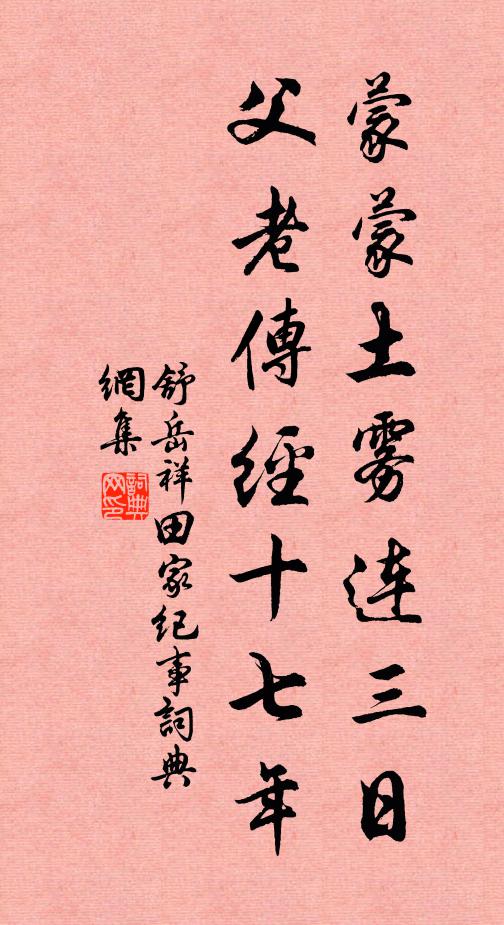 蒙蒙土雾连三日
父老傳經十七年
舒岳祥田家纪事詞典
網集
詞典网印